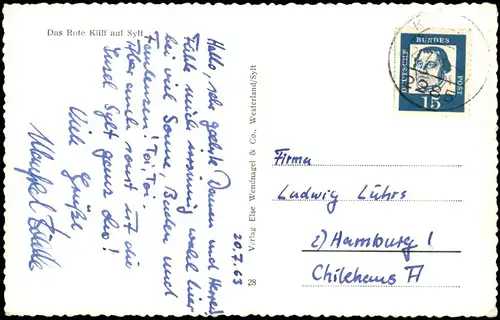 Das Rote Kliff auf Sylt
20.7.63
Hallo, sehr geehrte Damen und Herren!
Fühle mich wohl hier
bei viel Sonne, Baden und
Faulenzen! Toi, Toi.
Aber auch sonst ist die
Insel Sylt ganz
Viele Grüße
Verlag Else Wendnagel & Co., Westerland/Sylt
28
DEUTSCHE
BUNDES
POST
15
Firma
Ludwig Lührs
2) Hamburg 1
Chilehaus A